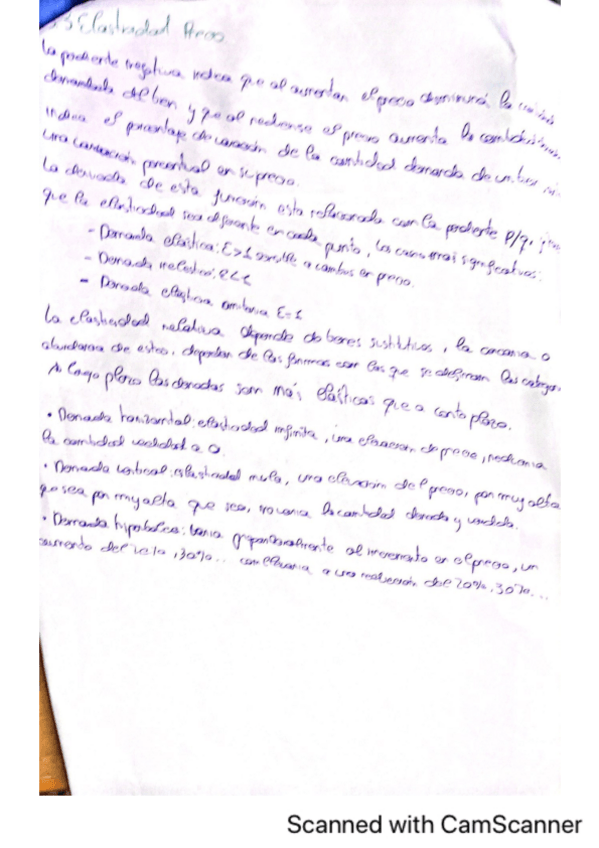 Elasticidad Precio
La pendiente negativa indica que al aumentar el precio disminuirá la
demandada del bien y que al reducirse el precio aumenta la cantidad
Indica el porcentaje de variación de la cantidad demanda de un bien
una variación porcentual en su precio.
La derivada de esta función esta relacionada con la pendiente P/q,
que la elasticidad sea diferente en cada punto, los casos mas significativos:
- Demanda elástica: E>1 sensible a cambios en precio.
- Demanda inelastica: E<1
- Demanda elastica unitaria E=1
La elasticidad relativa depende de bienes sustitutivos, la cercania o
abundancia de estos, dependen de las formas con las que se definan las
A largo plazo las demandas son más elásticas que a corto plazo.
• Demanda horizontal: elasticidad infinita, una elevacion de precio, reduciria
la cantidad vendida a 0.
• Demanda vertical: elasticidad nula, una elevación del precio, por muy alta
que sea por muy alta que sea, no varia la cantidad demanda y vendida.
• Demanda hiperbolica: varia proporcionalmente al incremento en el precio, un
aumento del 20%, 30%... conllevaria a una reducción del 20%, 30%...
Scanned with CamScanner